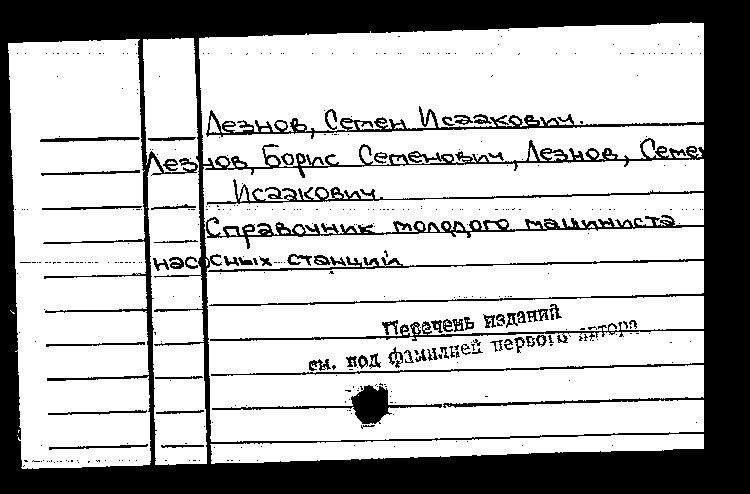 Лезнов, Семен Исаакович.
Лезнов, Борис Семенович, Лезнов, Семен
Исаакович.
Справочник молодого машиниста
насосных станций
Перечень изданий
см. под фамилией первого автора